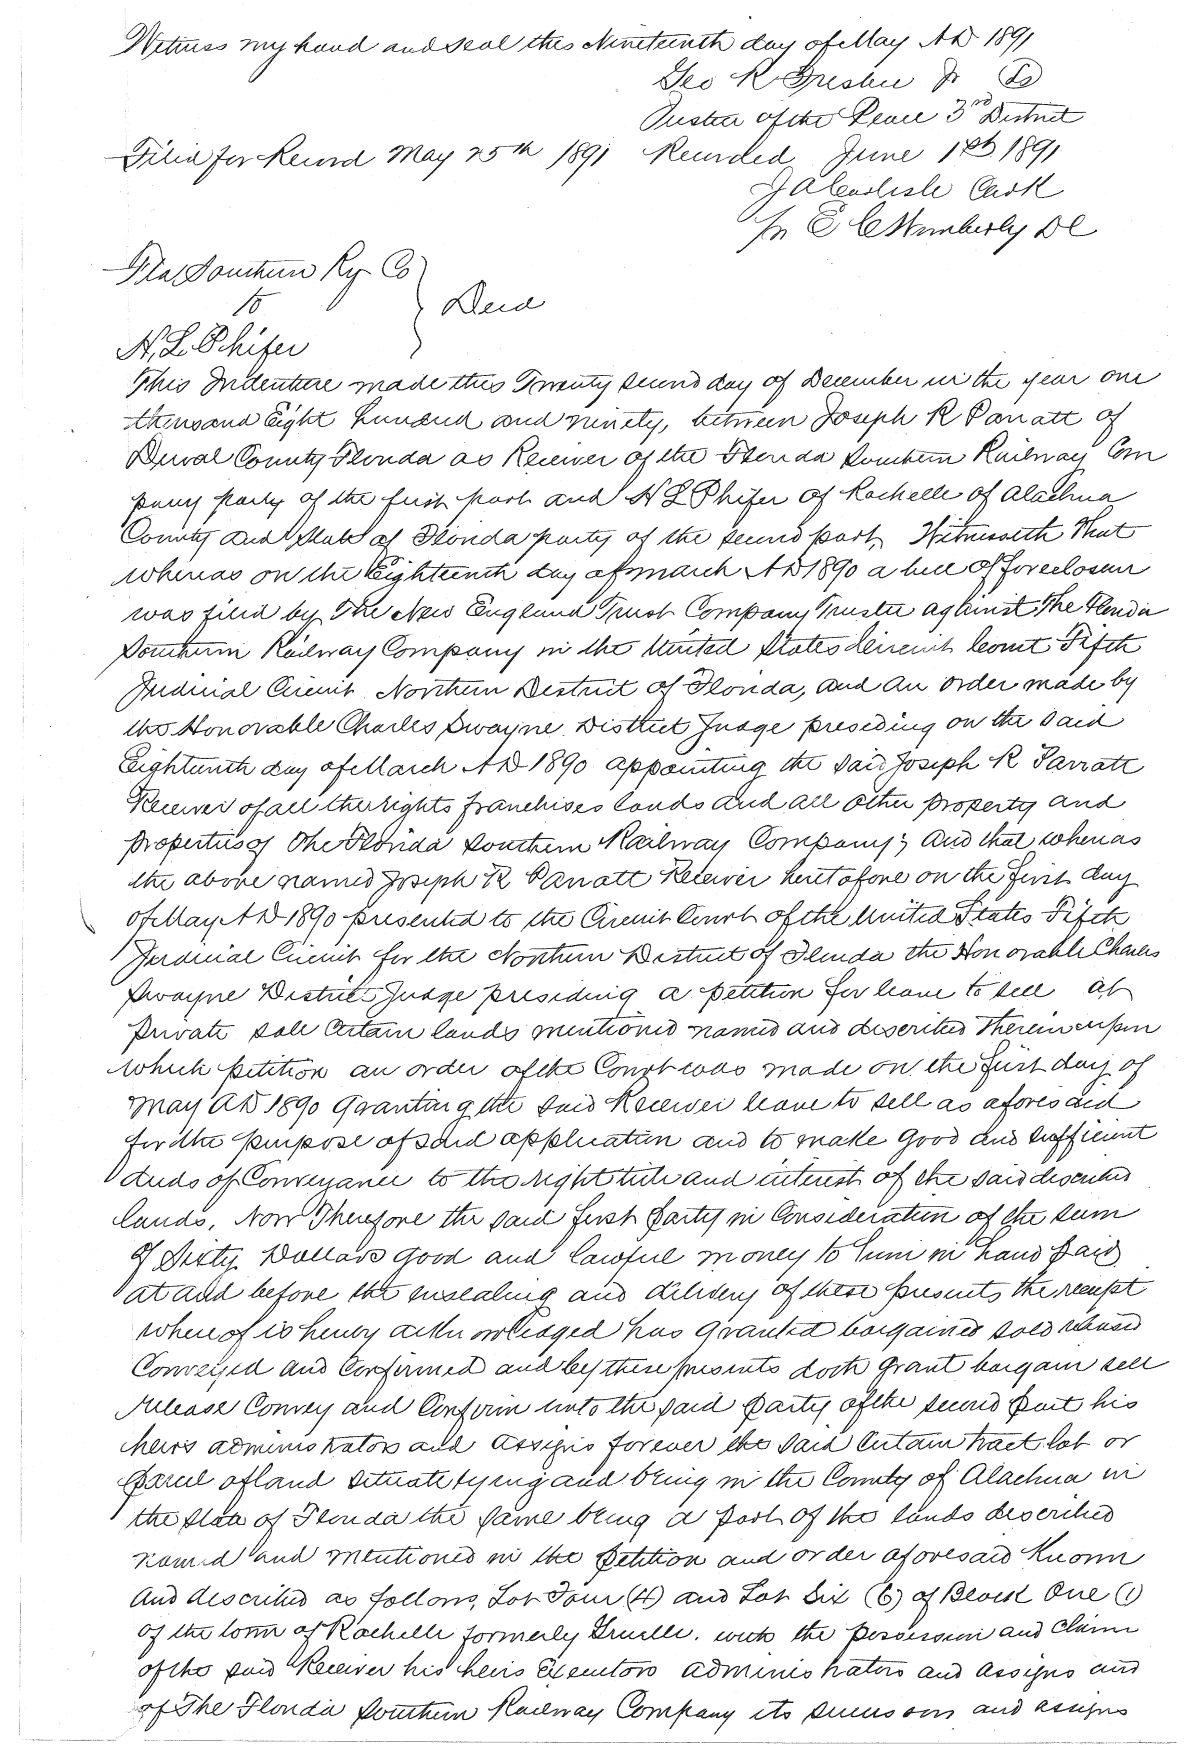 Witness my hand and seal this Nineteenth day of May AD 1891
Geo R Jr
Justice of the Peace 3rd District
Filed for Record May 25th 1891 Recorded June 1st 1891
J A Carlisle Clerk
pr E C Wimberly DC
Fla Southern Ry Co
to } Deed
H. L. Phifer
This Indenture made this Twenty second day of December in the year one
thousand Eight hundred and ninety, between Joseph R Parratt of
Duval County Florida as Receiver of the Florida Southern Railway Com
pany party of the first part and H L Phifer of Rochelle of Alachua
County and State of Florida party of the second part, Witnesseth That
whereas on the Eighteenth day of March AD 1890 a bill of foreclosure
was filed by The New England Trust Company Trustee against The Florida
Southern Railway Company in the United States Circuit Court Fifth
Judicial Circuit Northern District of Florida, and an order made by
the Honorable Charles Swayne District Judge presiding on the said
Eighteenth day of March AD 1890 appointing the said Joseph R Parratt
Receiver of all the rights franchises lands and all other property and
properties of The Florida Southern Railway Company; And that whereas
the above named Joseph R Parratt Receiver heretofore on the first day
of May AD 1890 presented to the Circuit Court of the United States Fifth
Judicial Circuit for the Northern District of Florida the Honorable Charles
Swayne District Judge presiding a petition for leave to sell at
private sale certain lands mentioned named and described therein upon
which petition an order of the Court was made on the first day of
May AD 1890 granting the said Receiver leave to sell as aforesaid
for the purpose of said application and to make good and sufficient
deeds of Conveyance to the right title and interest of the said described
lands. Now Therefore the said first party in Consideration of the sum
of Sixty Dollars good and lawful money to him in hand paid
at and before the ensealing and delivery of these presents the receipt
whereof is hereby acknowledged has granted bargained sold released
Conveyed and Confirmed and by these presents doth grant bargain sell
release Convey and Confirm unto the said party of the second part his
heirs administrators and assigns forever the said certain tract lot or
parcel of land situate lying and being in the County of Alachua in
the State of Florida the same being a part of the lands described
named and mentioned in the petition and order aforesaid Known
and described as follows, Lot Four (4) and Lot Six (6) of Block One (1)
of the town of Rochelle formerly Gruelle. with the possession and claim
of the said Receiver his heirs Executors administrators and assigns and
of The Florida Southern Railway Company its successors and assigns